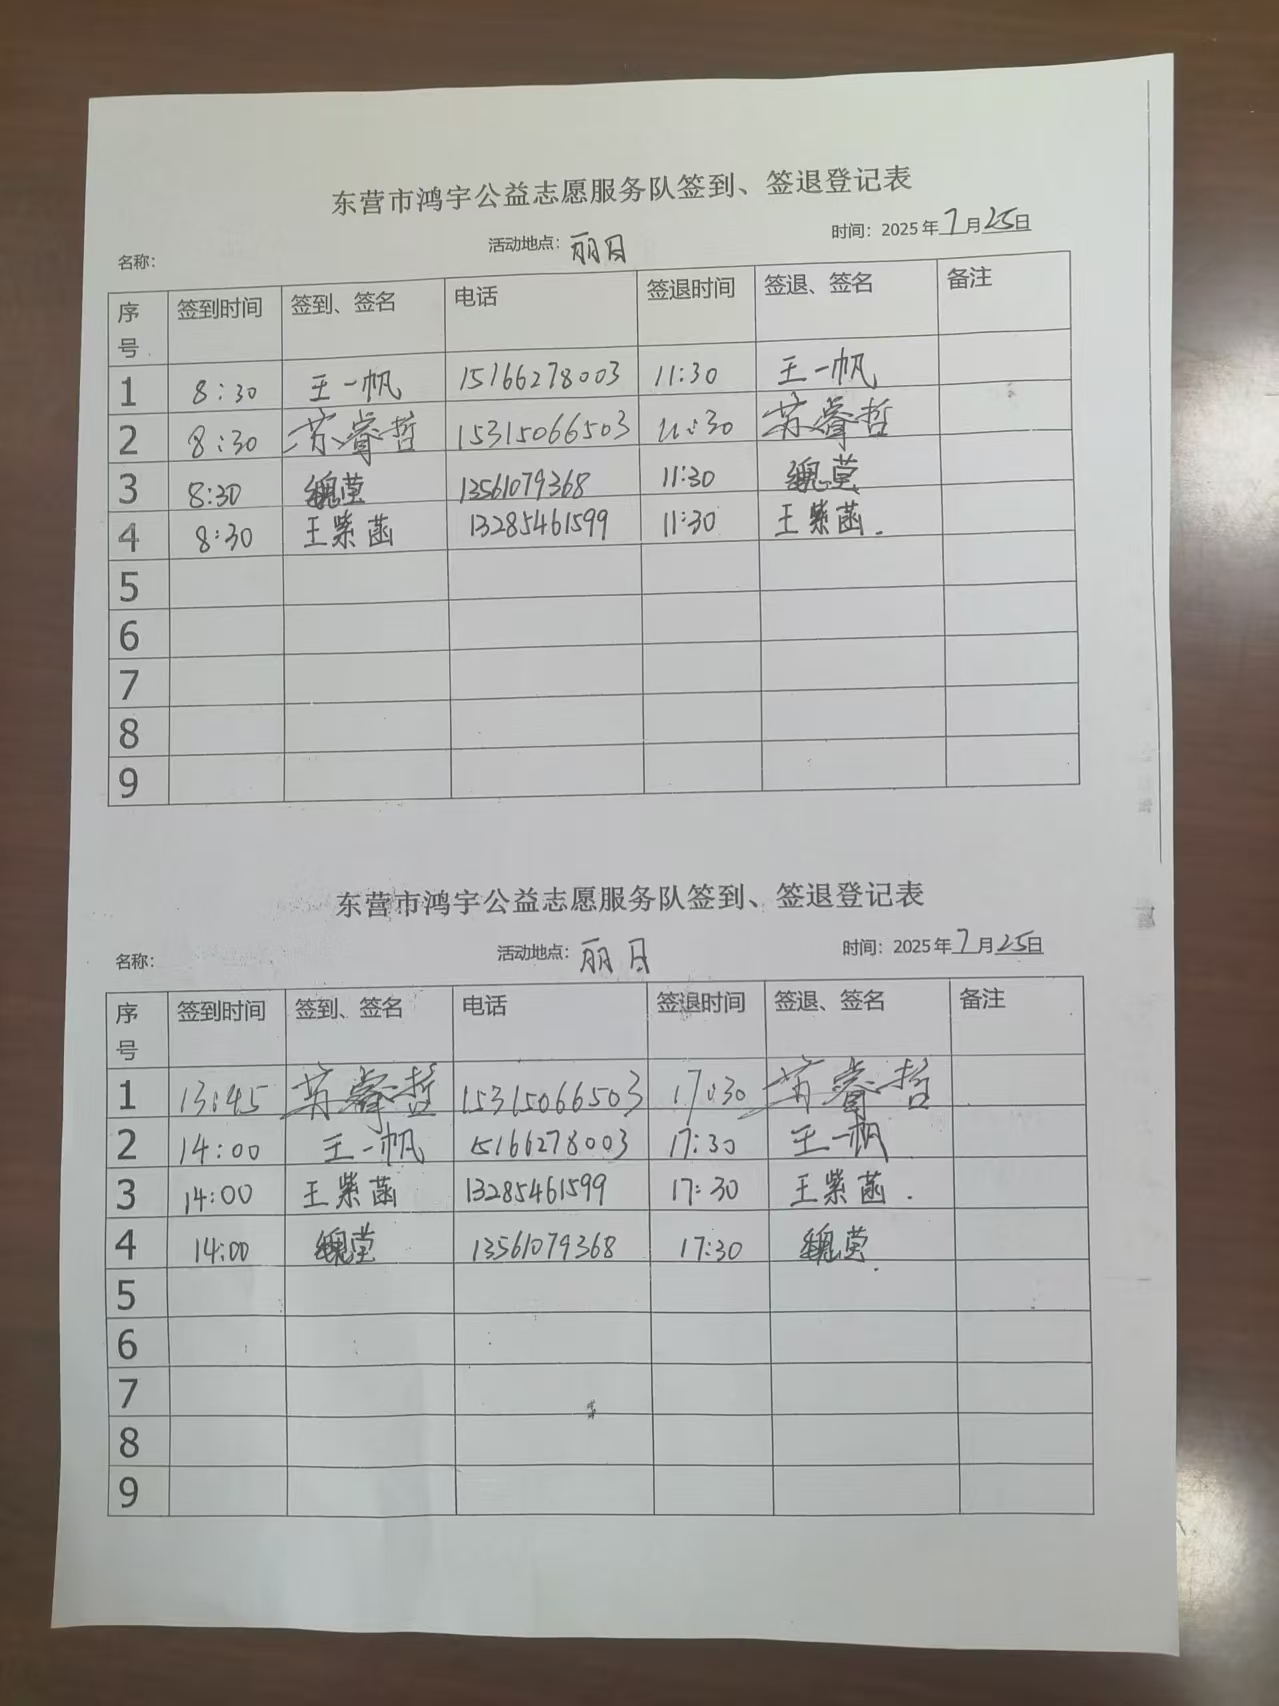 东营市鸿宇公益志愿服务队签到、签退登记表
名称： 活动地点：丽日 时间：2025年7月25日
序号 签到时间 签到、签名 电话 签退时间 签退、签名 备注
1 8:30 王一帆 15166278003 11:30 王一帆
2 8:30 苏睿哲 15315066503 11:30 苏睿哲
3 8:30 魏莹 13561079368 11:30 魏莹
4 8:30 王紫菡 13285461599 11:30 王紫菡.
5
6
7
8
9
东营市鸿宇公益志愿服务队签到、签退登记表
名称： 活动地点：丽日 时间：2025年7月25日
序号 签到时间 签到、签名 电话 签退时间 签退、签名 备注
1 13:45 苏睿哲 15315066503 17:30 苏睿哲
2 14:00 王一帆 15166278003 17:30 王一帆
3 14:00 王紫菡 13285461599 17:30 王紫菡.
4 14:00 魏莹 13561079368 17:30 魏莹.
5
6
7
8
9